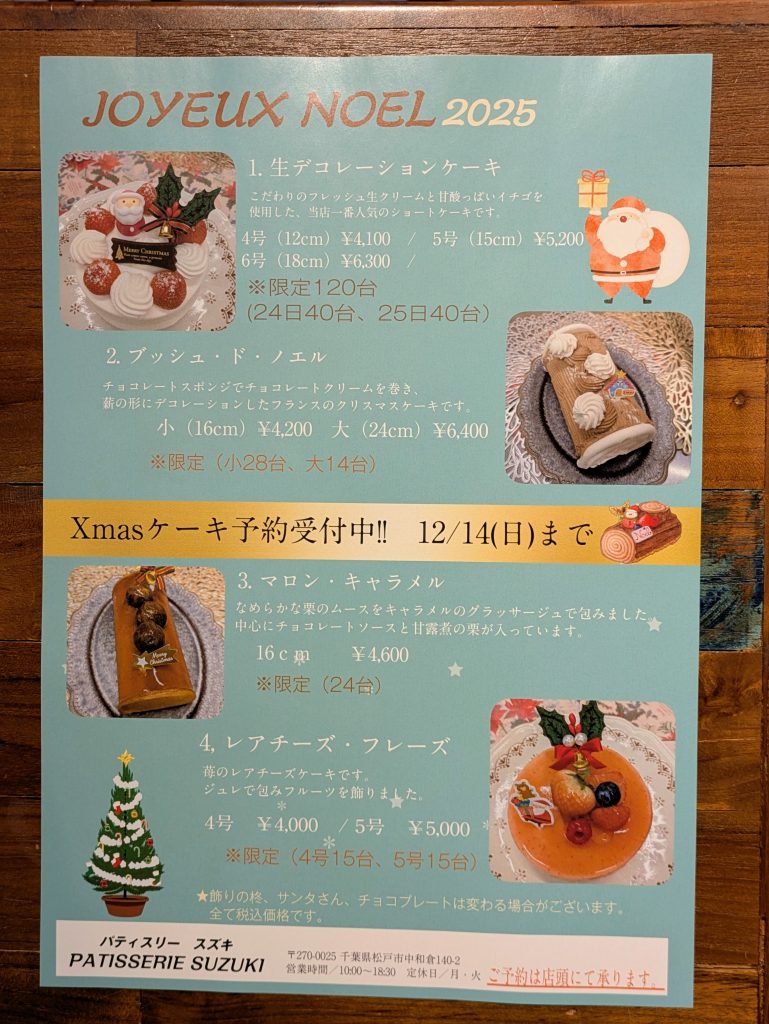 JOYEUX NOEL 2025
1. 生デコレーションケーキ
こだわりのフレッシュ生クリームと甘酸っぱいイチゴを
使用した、当店一番人気のショートケーキです。
4号（12cm）¥4,100　5号（15cm）¥5,200
6号（18cm）¥6,300　/
※限定120台
(24日40台、25日40台）
MERRY CHRISTMAS
2. ブッシュ・ド・ノエル
チョコレートスポンジでチョコレートクリームを巻き、
薪の形にデコレーションしたフランスのクリスマスケーキです。
小（16cm）¥4,200　大（24cm）¥6,400
※限定（小28台、大14台）
Xmasケーキ予約受付中!!　12/14(日)まで
3. マロン・キャラメル
なめらかな栗のムースをキャラメルのグラッサージュで包みました。
中心にチョコレートソースと甘露煮の栗が入っています。
16ｃｍ　¥4,600
※限定（24台）
Merry Christmas
4, レアチーズ・フレーズ
苺のレアチーズケーキです。
ジュレで包みフルーツを飾りました。
4号　¥4,000　/ 5号　¥5,000
※限定（4号15台、5号15台）
★飾りの柊、サンタさん、チョコプレートは変わる場合がございます。
全て税込価格です。
パティスリー　スズキ
PATISSERIE SUZUKI
〒270-0025 千葉県松戸市中和倉140-2
営業時間／10:00〜18:30　定休日／月・火
ご予約は店頭にて承ります。